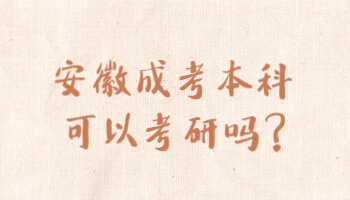 安徽成考本科
可以考研吗?